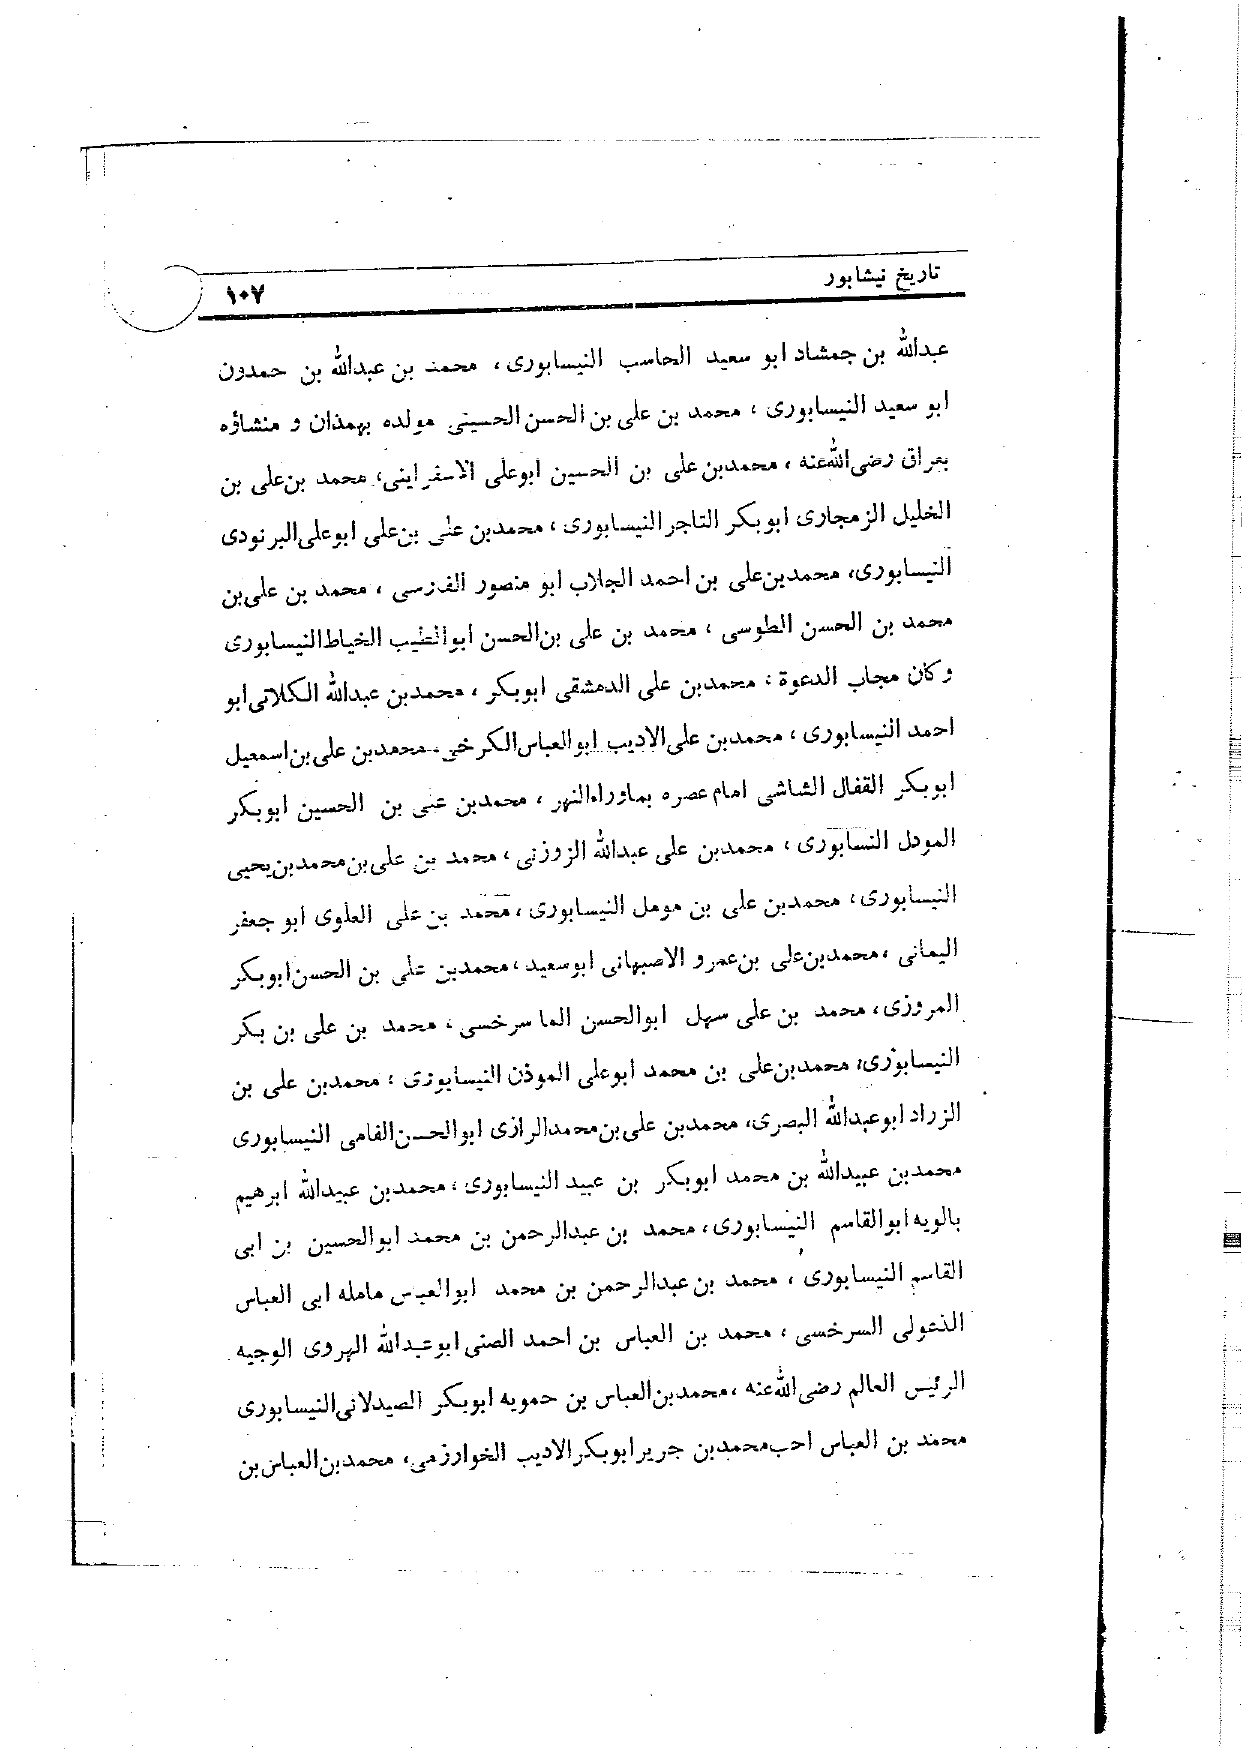 تاریخ نیشابور
۱۰۷
عبدالله بن جمشاد ابو سعید الحاسب النیسابوری، محمد بن عبدالله بن حمدون
ابو سعید النیسابوری، محمد بن علی بن الحسن الحسینی مولده بهمذان و منشاؤه
بعراق رضی‌الله‌عنه، محمدبن علی بن الحسین ابوعلی الاسفراینی، محمد بن‌علی بن
الخلیل الزمجاری ابوبکر التاجر النیسابوری، محمدبن علی بن‌علی ابوعلی البرنودی
النیسابوری، محمدبن‌علی بن احمد الجلاب ابو منصور الفرسی، محمد بن علی‌بن
محمد بن الحسن الطوسی، محمد بن علی بن‌الحسن ابوالطیب الخیاط‌النیسابوری
وکان مجاب الدعوة، محمدبن علی الدمشقی ابوبکر، محمدبن عبدالله الکلاتی ابو
احمد النیسابوری، محمدبن علی‌الادیب ابوالعباس‌الکرخی محمدبن علی‌بن‌اسمعیل
ابوبکر القفال الشاشی امام‌عصره بماوراءالنهر، محمدبن علی بن الحسین ابوبکر
المودل النسابوری، محمدبن علی عبدالله الزوزنی، محمد بن علی‌بن‌محمدبن‌یحیی
النیسابوری، محمدبن علی بن مومل النیسابوری، محمد بن علی العلوی ابو جعفر
الیمانی، محمدبن‌علی بن‌عمرو الاصبهانی ابوسعید، محمدبن علی بن الحسن‌ابوبکر
المروزی، محمد بن علی سهل ابوالحسن الما سرخسی، محمد بن علی بن بکر
النیسابوری، محمدبن‌علی بن محمد ابوعلی الموذن النیسابوری، محمدبن علی بن
الزراد ابوعبدالله البصری، محمدبن علی‌بن‌محمدالرازی ابوالحسن‌الفامی النیسابوری
محمدبن عبیدالله بن محمد ابوبکر بن عبید النیسابوری، محمدبن عبیدالله ابرهیم
بالویه ابوالقاسم النیسابوری، محمد بن عبدالرحمن بن محمد ابوالحسین بن ابی
القاسم النیسابوری، محمد بن عبدالرحمن بن محمد ابوالعباس مامله ابی العباس
الدعولی السرخسی، محمد بن العباس بن احمد الضبی ابوعبدالله الهروی الوجیه
الرئیس العالم رضی‌الله‌عنه، محمدبن‌العباس بن حمویه ابوبکر الصیدلانی‌النیسابوری
محمد بن العباس احب‌محمدبن جریر ابوبکرالادیب الخوارزمی، محمدبن‌العباس‌بن